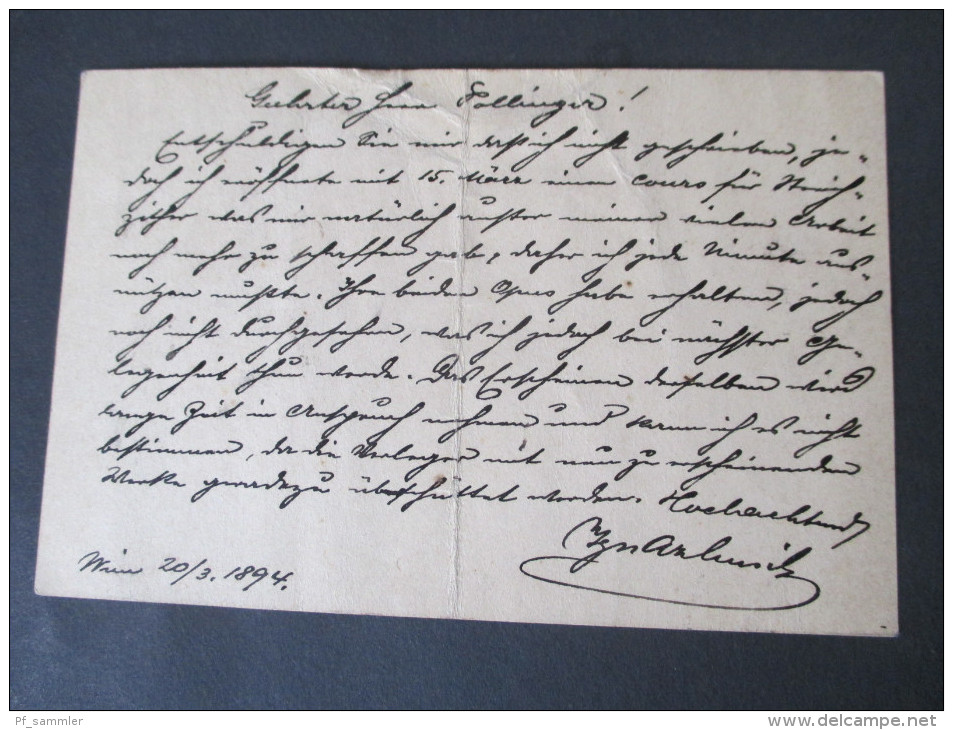 Geehrter Herr Pollinger!
Entschuldigen Sie mir daß ich nicht geschrieben, je-
doch ich eröffnete mit 15. März einen Cours für Streich-
zither was mir natürlich außer meiner vielen Arbeit
noch mehr zu schaffen gab, daher ich jede Minute aus-
nützen mußte. Ihre beiden Opus habe erhalten, jedoch
noch nicht durchgesehen, was ich jedoch bei nächster Ge-
legenheit thun werde. Das Erscheinen derselben wird
lange Zeit in Anspruch nehmen und kann ich es nicht
bestimmen, da die Verleger mit neu zu erscheinenden
Werke geradezu überschüttet werden. Hochachtend
Wien 20/3. 1894.
Pf_sammler
www.delcampe.net